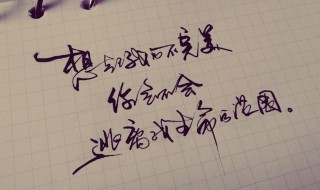 想起我的不完美
你会不会
逃离我生命的范围。